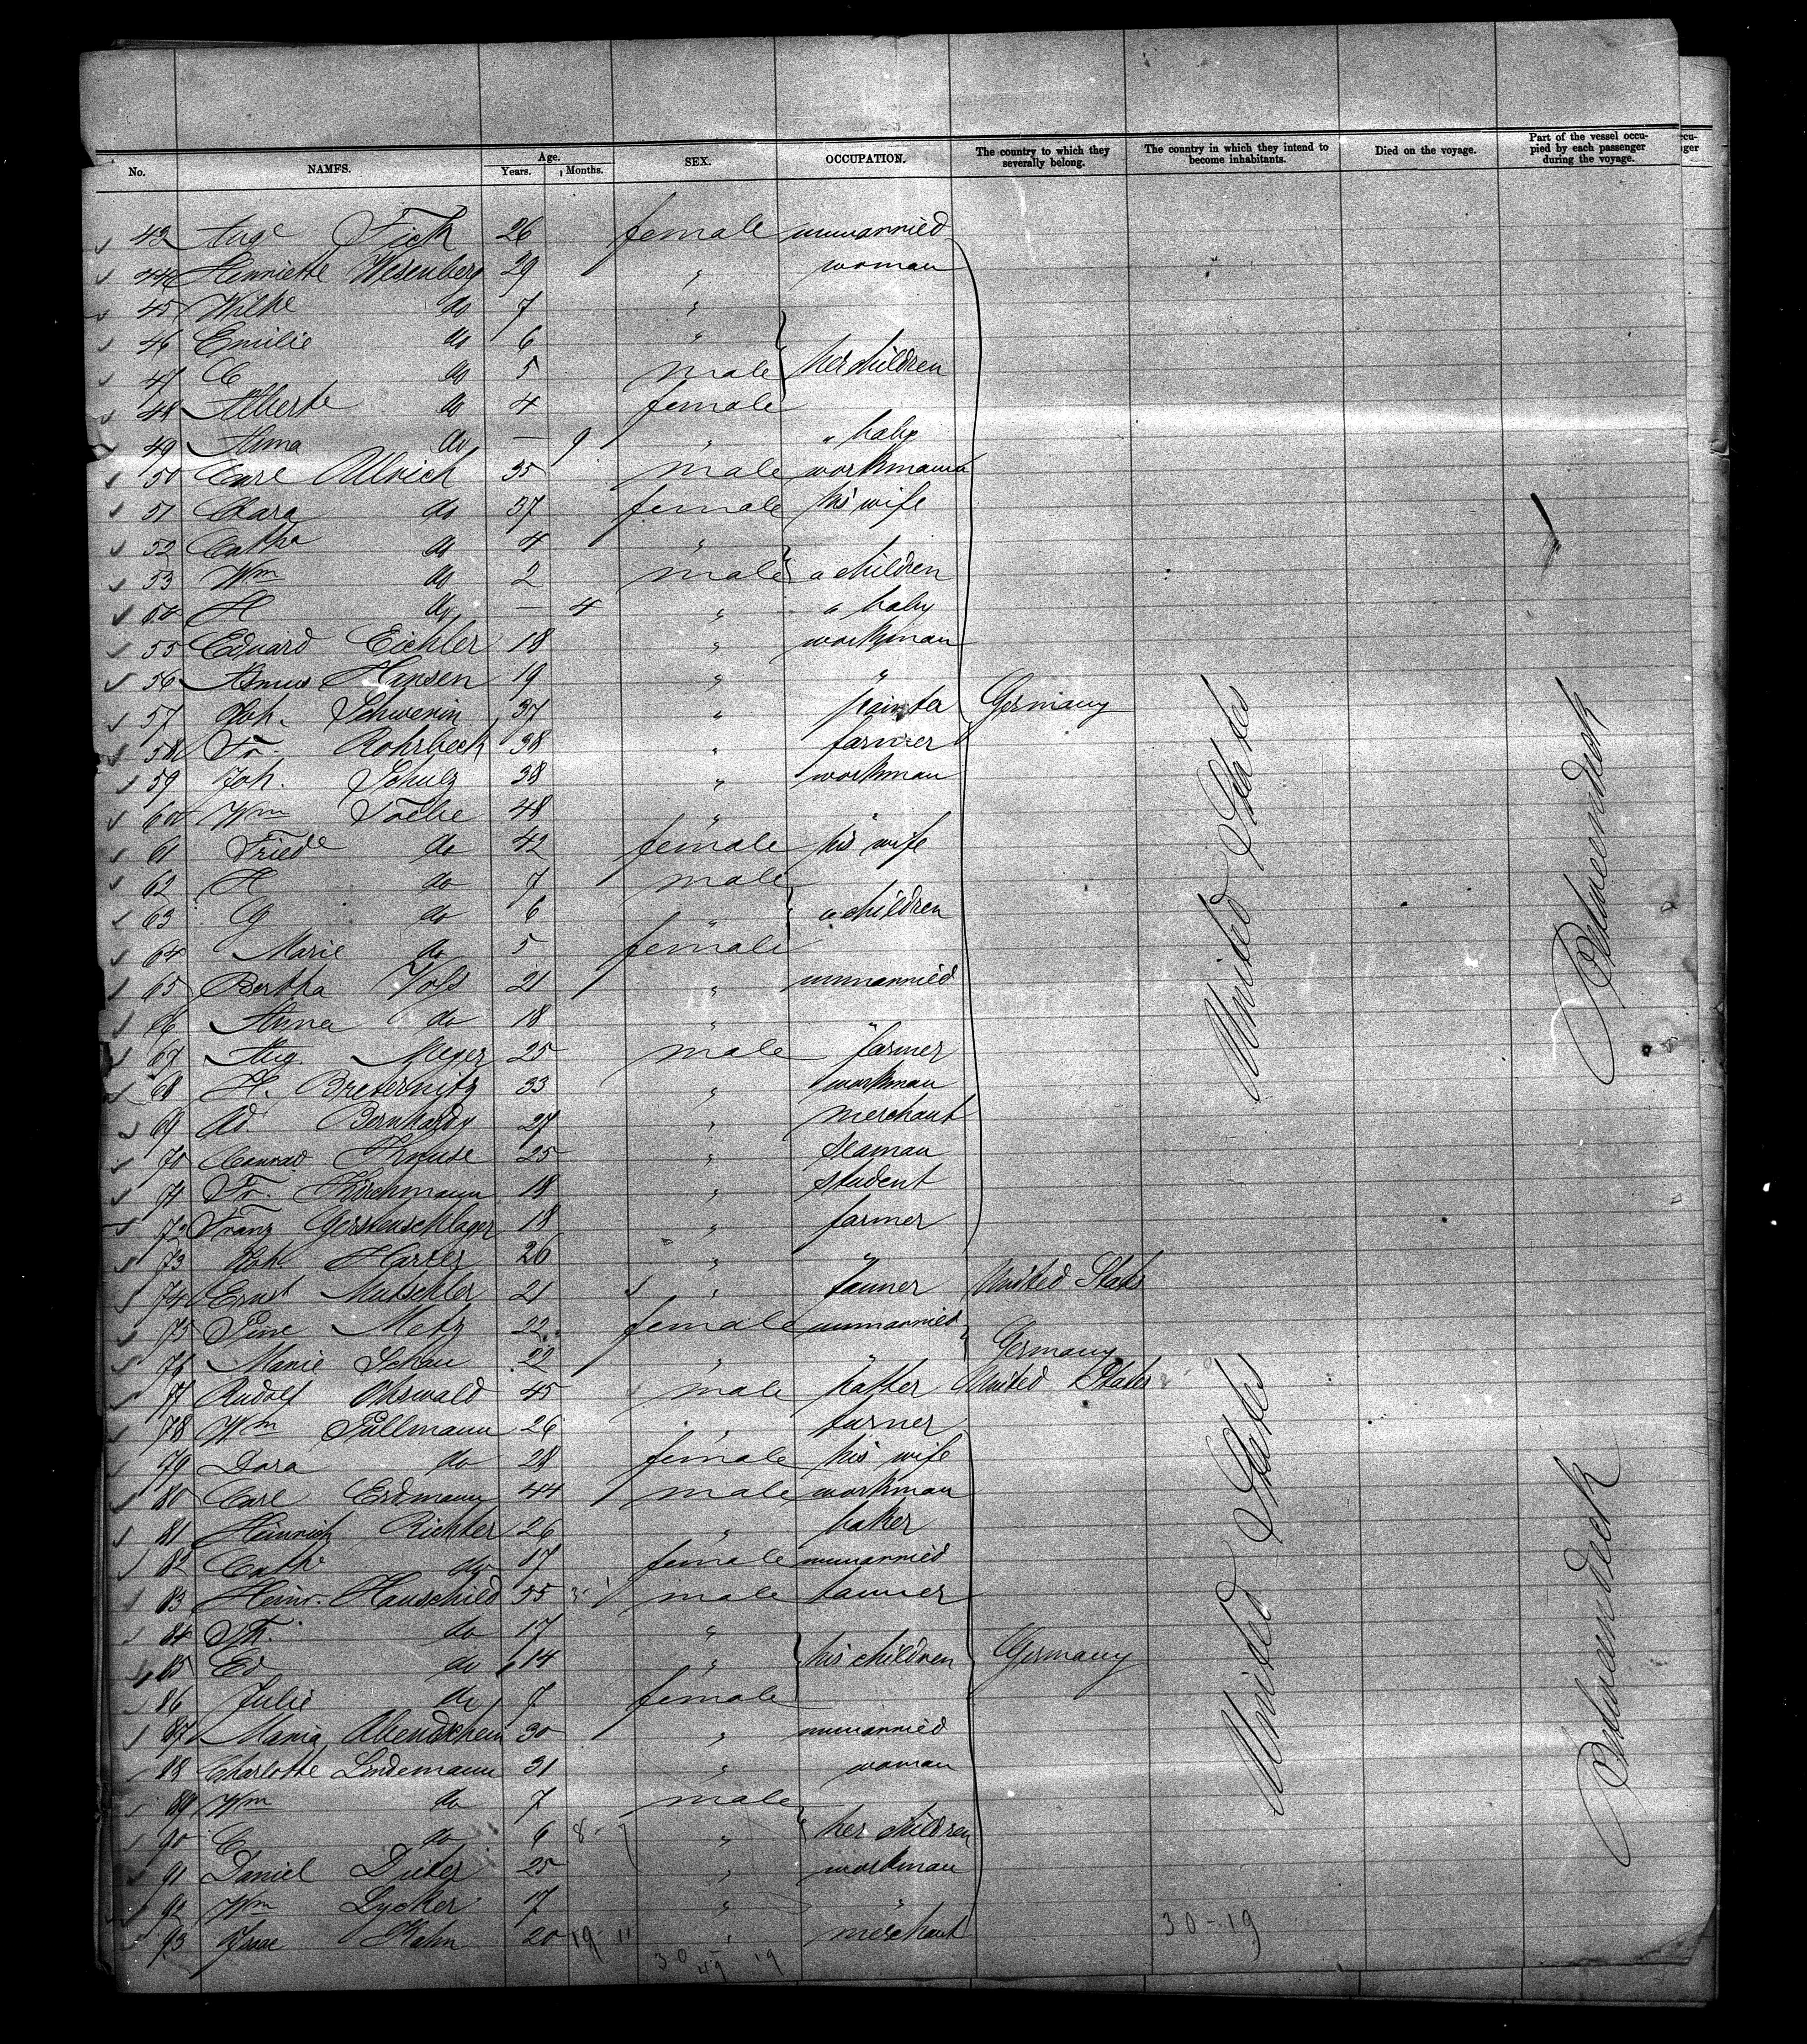 No. NAMES. Age. Years. Months. SEX. OCCUPATION. The country to which they severally belong. The country in which they intend to become inhabitants. Died on the voyage. Part of the vessel occupied by each passenger during the voyage.
43 Auge Fick 26 female unmarried
44 Henriette Wesenberg 29 " woman
45 Wilhe do 7 "
46 Emilie do 6 "
47 C do 5 male her children
48 Alberte do 4 female
49 Anna do — 9 " " baby
50 Carl Ullrich 35 male workmann
51 Clara do 37 female his wife
52 Cathe do 4 "
53 Wm do 2 male " children
54 H do — 4 " " baby
55 Eduard Eichler 18 " workman
56 Asmus Hansen 19 " "
57 Joh. Schwerin 37 " painter Germany
58 Fr. Rohrbeck 38 " farmer
59 Joh. Schulz 38 " workman
60 Wm 48 " "
61 Friede do 42 female his wife
62 H do 7 male
63 G do 6 " " children
64 Marie do 5 female
65 Bertha Voss 21 " unmarried
66 Anna do 18 " "
67 Aug. Meyer 25 male farmer
68 H. Breternitz 33 " workman
69 Ad Bernhardy 27 " merchant
70 Conrad Kruse 25 " seaman
71 Fr. Hirschmann 18 " student
72 Franz Gerstenschlager 18 " farmer
73 Joh Harzer 26 " "
74 Ernst Mutschler 21 " tanner United States
75 Line Metz 22 female unmarried
76 Marie Schau 22 " " Germany
77 Rudolf Ohswald 45 male hatter United States
78 Wm Pullmann 26 " turner
79 Dora do 28 female his wife
80 Carl Erdmann 44 male workman
81 Heinrich Richter 26 " baker
82 Cathe do 17 female unmarried
83 Heinr. Hauschild 55 male tanner
84 Th. do 17 "
85 Ed do 14 " his children Germany
86 Julie do 7 female
87 Maria Abendschein 30 " unmarried
88 Charlotte Lindemann 31 " woman
89 Wm do 7 male
90 C do 6 8 " her children
91 Daniel Dieter 25 " workman
92 Wm Lycker 17 " "
93 Isaac Kahn 20 19 11 " merchant 30-19
30 - 19
49
United States
United States
Betweendeck
Betweendeck